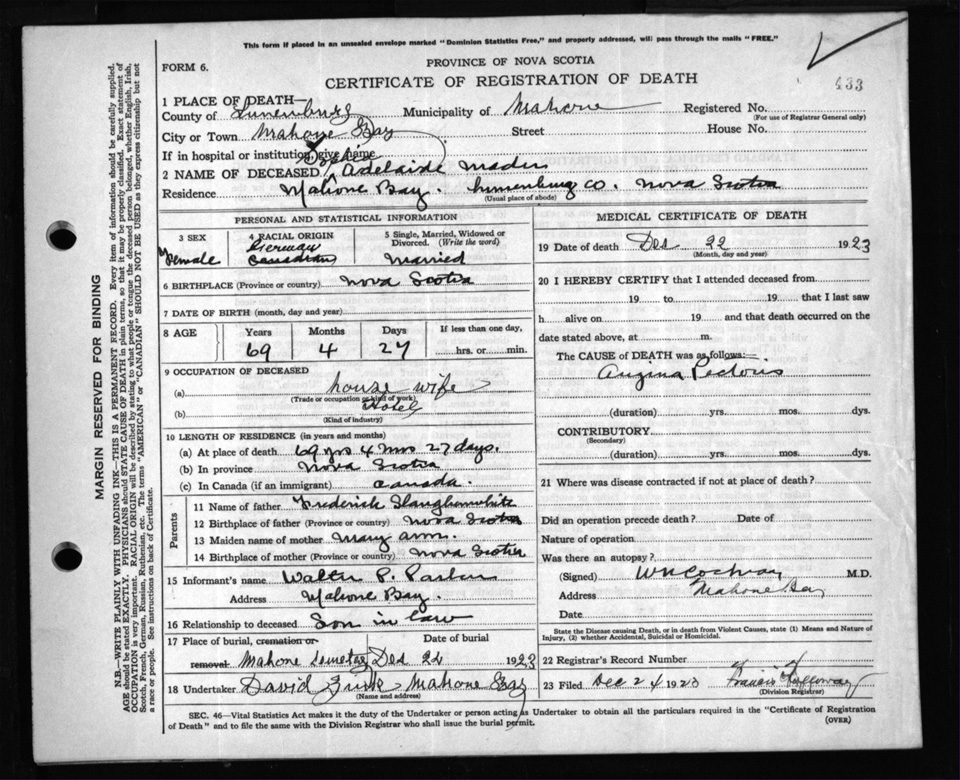 This form if placed in an unsealed envelope marked "Dominion Statistics Free," and properly addressed, will pass through the mails "FREE."
FORM 6.
PROVINCE OF NOVA SCOTIA
CERTIFICATE OF REGISTRATION OF DEATH
433
1 PLACE OF DEATH—
County of Lunenburg Municipality of Mahone Registered No.
(For use of Registrar General only)
City or Town Mahone Bay Street House No.
If in hospital or institution, give name
2 NAME OF DECEASED Adelaide Mader
Residence Mahone Bay. Lunenburg Co. Nova Scotia
(Usual place of abode)
PERSONAL AND STATISTICAL INFORMATION
3 SEX 4 RACIAL ORIGIN 5 Single, Married, Widowed or Divorced. (Write the word)
Female German Canadian Married
6 BIRTHPLACE (Province or country) Nova Scotia
7 DATE OF BIRTH (month, day and year)
8 AGE Years Months Days If less than one day,
69 4 27 hrs. or min.
9 OCCUPATION OF DECEASED
(a) house wife
(Trade or occupation or kind of work)
(b) Hotel
(Kind of industry)
10 LENGTH OF RESIDENCE (in years and months)
(a) At place of death 69 yrs 4 mos 27 days.
(b) In province Nova Scotia
(c) In Canada (if an immigrant) Canada.
Parents
11 Name of father Frederick Slaughenwhite
12 Birthplace of father (Province or country) Nova Scotia
13 Maiden name of mother Mary Ann.
14 Birthplace of mother (Province or country) Nova Scotia
15 Informant's name Walter P.
Address Mahone Bay.
16 Relationship to deceased Son in law
17 Place of burial, cremation or removal Date of burial
Mahone Cemetery Dec 24 1923
18 Undertaker David Mahone Bay
(Name and address)
MEDICAL CERTIFICATE OF DEATH
19 Date of death Dec 22 1923
(Month, day and year)
20 I HEREBY CERTIFY that I attended deceased from
19 to 19 that I last saw
h alive on 19 and that death occurred on the
date stated above, at m.
The CAUSE of DEATH was as follows:—
Angina Pectoris
(duration) yrs. mos. dys.
CONTRIBUTORY
(Secondary)
(duration) yrs. mos. dys.
21 Where was disease contracted if not at place of death?
Did an operation precede death? Date of
Nature of operation
Was there an autopsy?
(Signed) W N Cochran M.D.
Address Mahone Bay
Date
State the Disease causing Death, or in death from Violent Causes, state (1) Means and Nature of
Injury, (2) whether Accidental, Suicidal or Homicidal.
22 Registrar's Record Number
23 Filed Dec 24 1923 Francis
(Division Registrar)
SEC. 46—Vital Statistics Act makes it the duty of the Undertaker or person acting as Undertaker to obtain all the particulars required in the "Certificate of Registration
of Death" and to file the same with the Division Registrar who shall issue the burial permit.
(OVER)
MARGIN RESERVED FOR BINDING
N.B.—WRITE PLAINLY WITH UNFADING INK—THIS IS A PERMANENT RECORD. Every item of information should be carefully supplied.
AGE should be stated EXACTLY. PHYSICIANS should STATE CAUSE OF DEATH in plain terms, so that it may be properly classified. Exact statement of
OCCUPATION is very important. RACIAL ORIGIN will be described by stating to what people or tongue the deceased person belonged, whether English, Irish,
Scotch, French, German, Russian, Ruthenian, etc. The terms "AMERICAN" or "CANADIAN" SHOULD NOT BE USED as they express citizenship but not
a race or people. See instructions on back of Certificate.